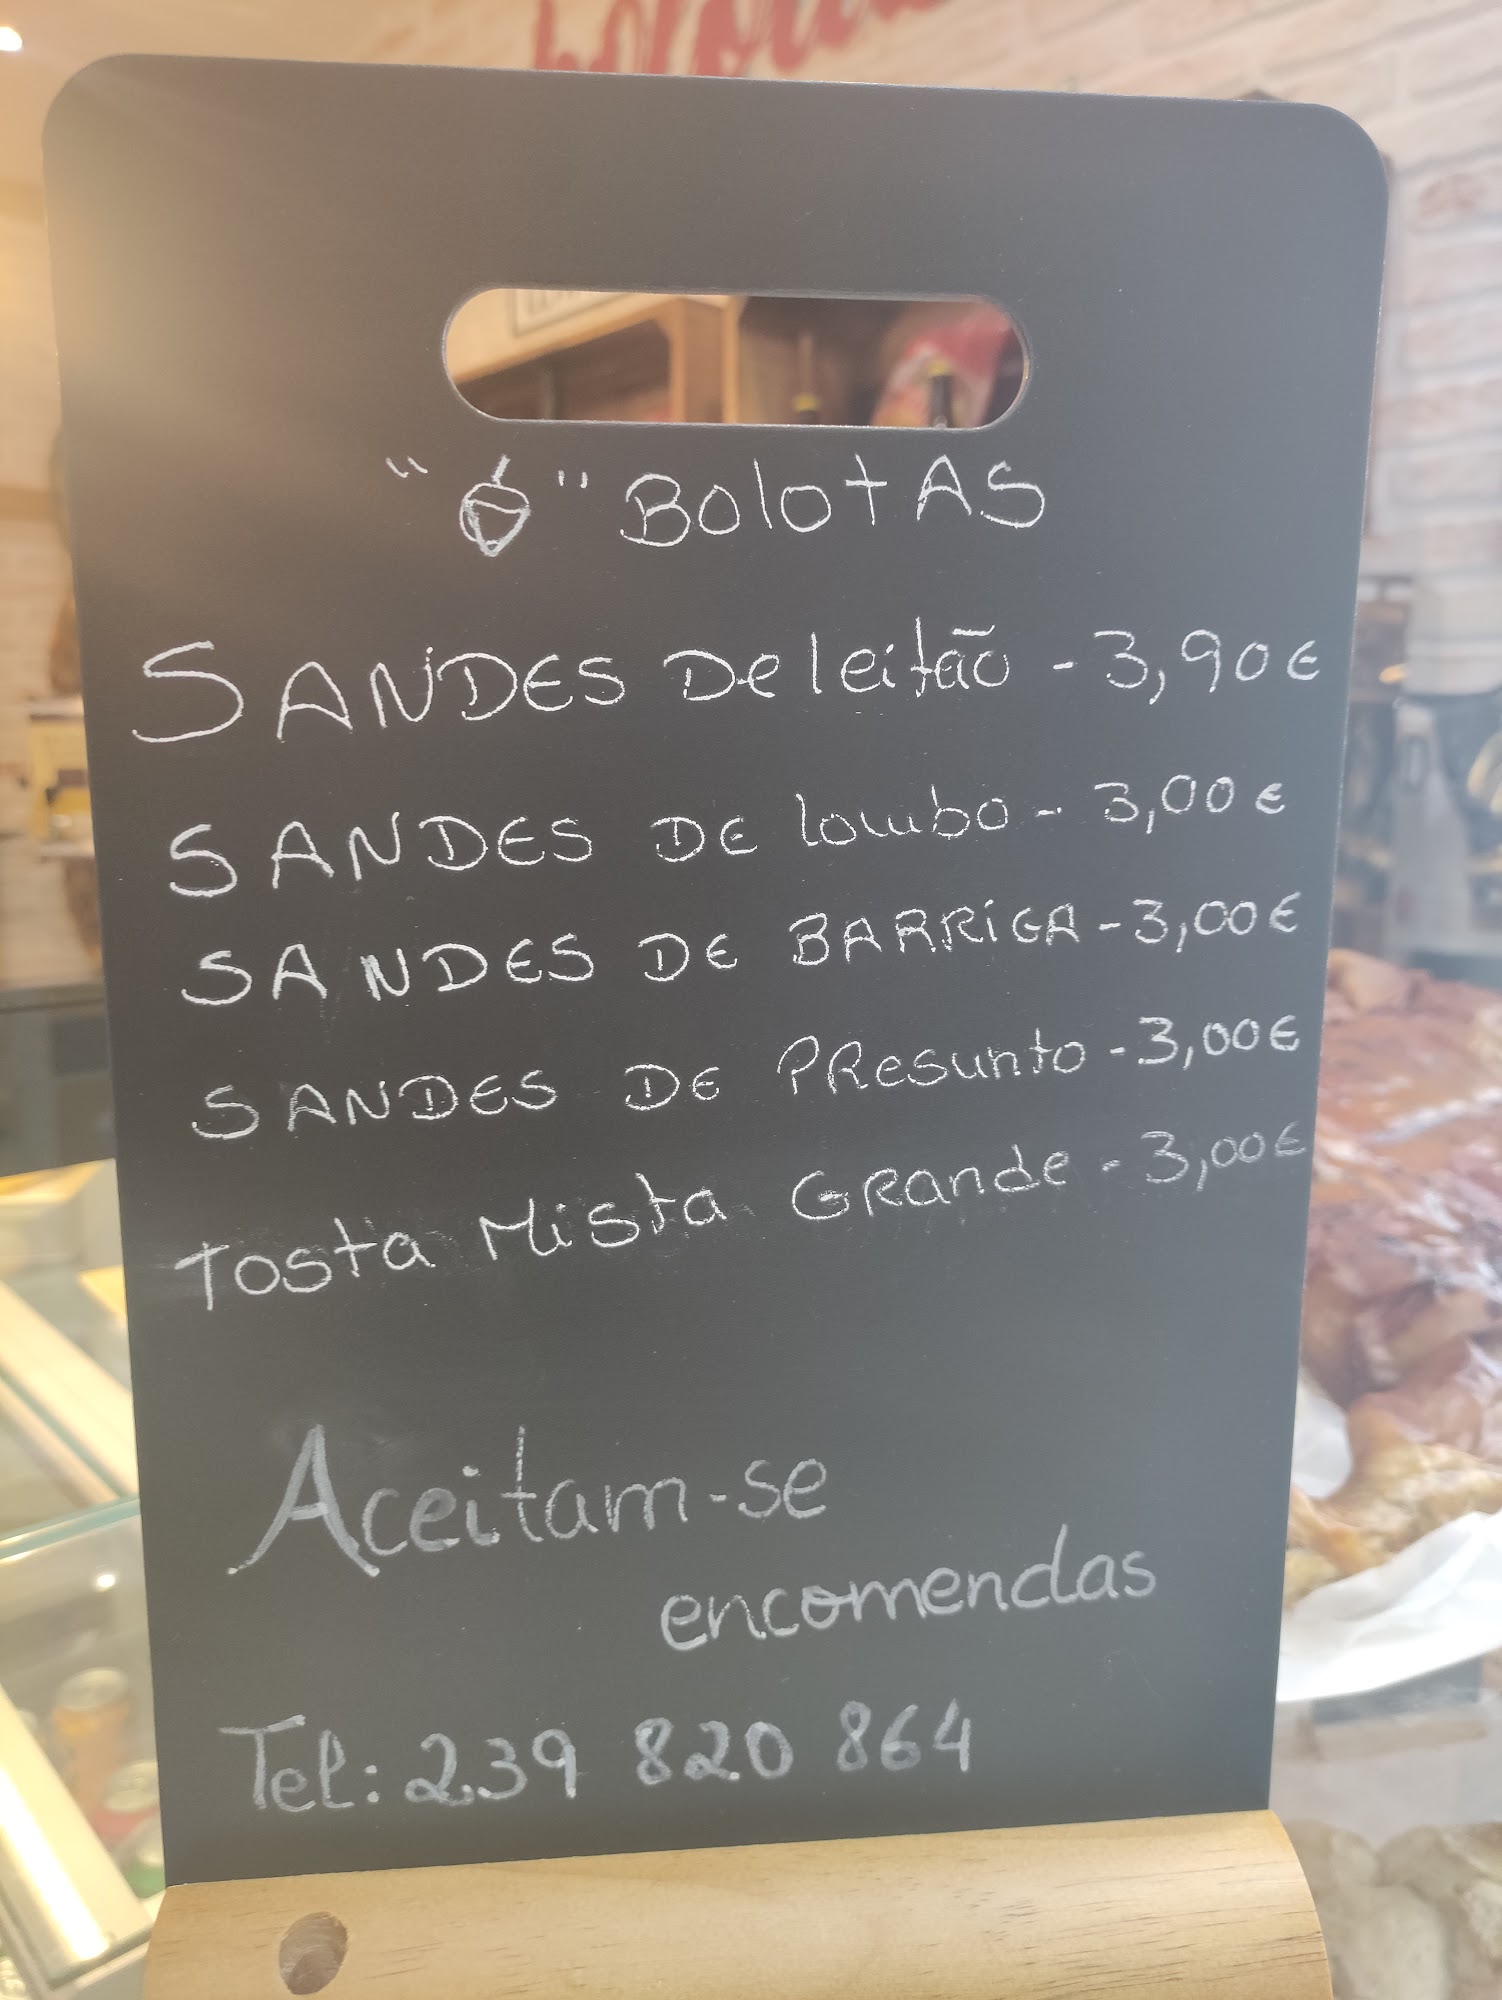 " " BolotAS
SANDES De leitão - 3,90€
SANDES DE lombo - 3,00€
SANDES DE BARRiGA - 3,00€
SANDES DE PResunto - 3,00€
Tosta Mista GRande - 3,00€
Aceitam-se
encomendas
Tel: 239 820 864